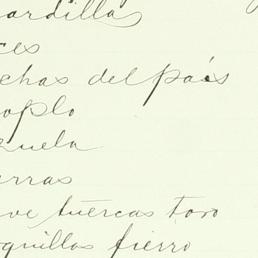 ardilla
ces
chas del país
oplo
zuela
erras
ve tuercas toro
quillas fierro